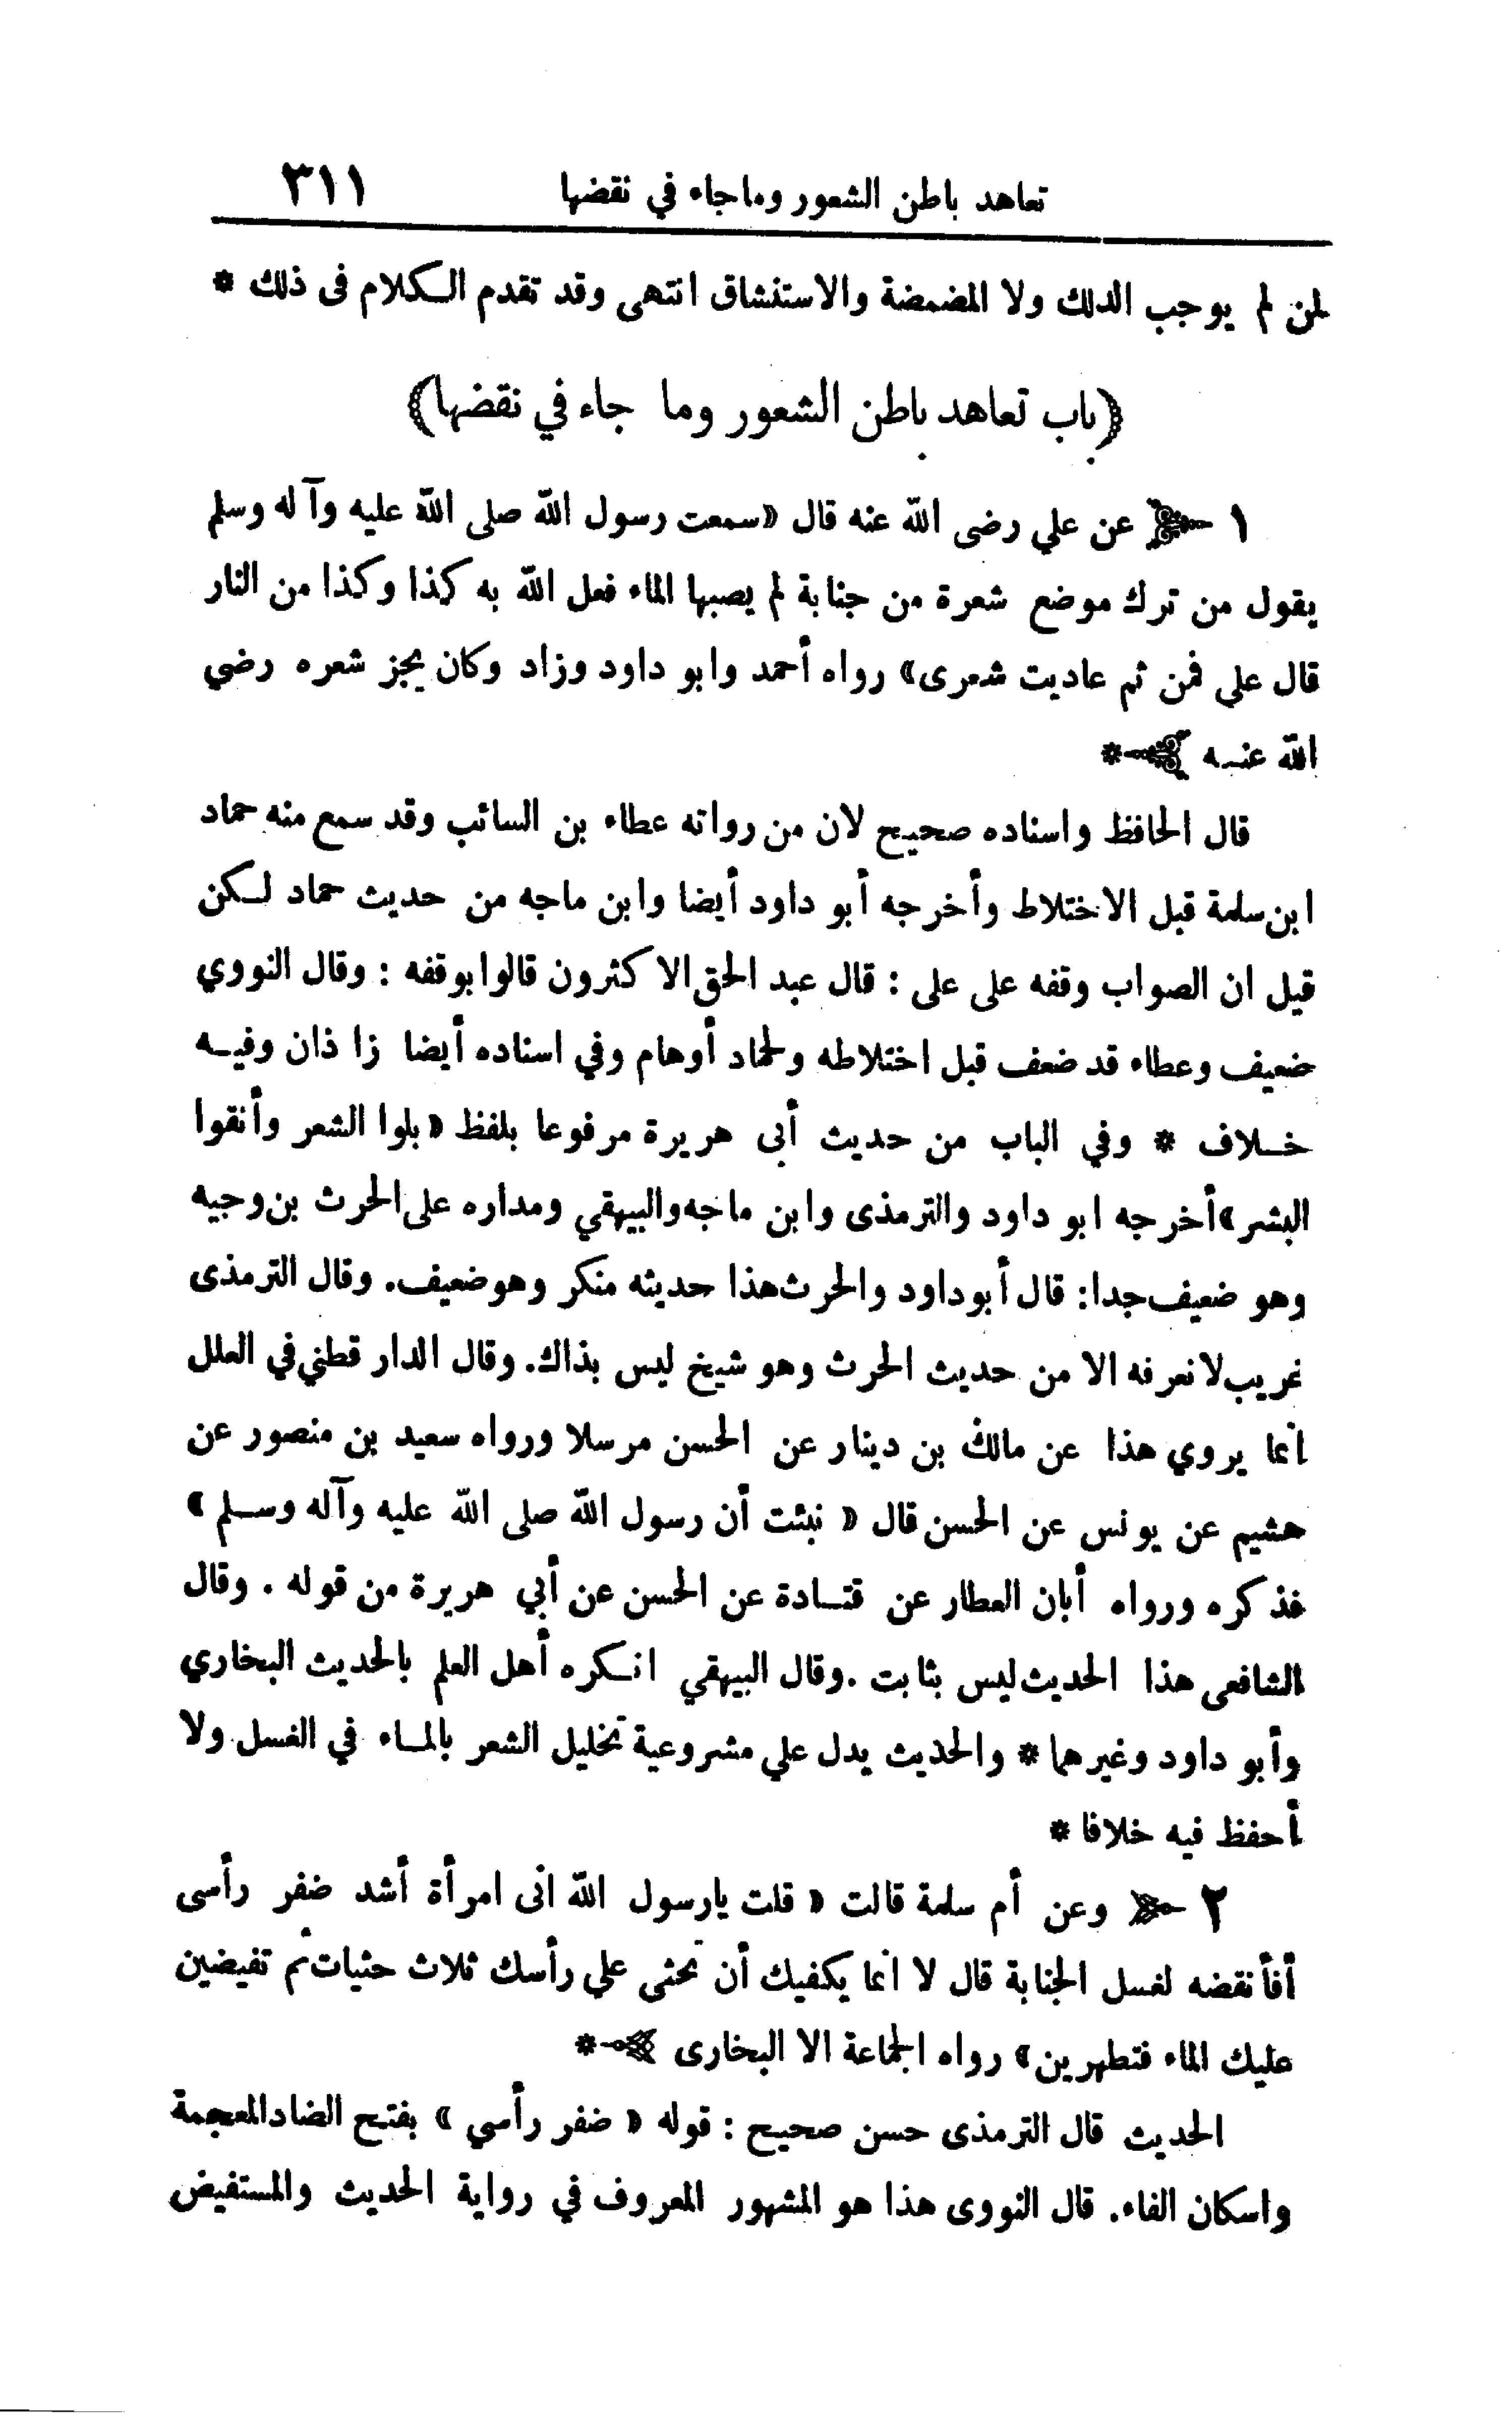 تعاهد باطن الشعور وما جاء في نقضها ٣١١
لمن لم يوجب الدلك ولا المضمضة والاستنشاق انتهى وقد تقدم الكلام فى ذلك *
﴿باب تعاهد باطن الشعور وما جاء في نقضها﴾
١ عن علي رضى الله عنه قال «سمعت رسول الله صلى الله عليه وآله وسلم
يقول من ترك موضع شعرة من جنابة لم يصبها الماء فعل الله به كذا وكذا من النار
قال على فمن ثم عاديت شعرى» رواه أحمد وابو داود وزاد وكان يجز شعره رضي
الله عنه *
قال الحافظ واسناده صحيح لان من رواته عطاء بن السائب وقد سمع منه حماد
ابن سلمة قبل الاختلاط وأخرجه أبو داود أيضا وابن ماجه من حديث حماد لكن
قيل ان الصواب وقفه على على : قال عبد الحق الاكثرون قالوا بوقفه : وقال النووي
ضعيف وعطاء قد ضعف قبل اختلاطه ولحماد أوهام وفي اسناده أيضا زاذان وفيه
خلاف * وفي الباب من حديث أبى هريرة مرفوعا بلفظ «بلوا الشعر وأنقوا
البشر» أخرجه ابو داود والترمذى وابن ماجه والبيهقي ومداره على الحرث بن وجيه
وهو ضعيف جدا: قال أبو داود والحرث هذا حديثه منكر وهو ضعيف. وقال الترمذى
غريب لا نعرفه الا من حديث الحرث وهو شيخ ليس بذاك. وقال الدار قطني في العلل
انما يروي هذا عن مالك بن دينار عن الحسن مرسلا ورواه سعيد بن منصور عن
هشيم عن يونس عن الحسن قال « نبئت أن رسول الله صلى الله عليه وآله وسلم »
فذكره ورواه أبان العطار عن قتادة عن الحسن عن أبي هريرة من قوله . وقال
الشافعى هذا الحديث ليس بثابت . وقال البيهقي انكره أهل العلم بالحديث البخاري
وأبو داود وغيرهما * والحديث يدل علي مشروعية تخليل الشعر بالماء في الغسل ولا
أحفظ فيه خلافا *
٢ وعن أم سلمة قالت « قلت يارسول الله انى امرأة أشد ضفر رأسى
أفأنقضه لغسل الجنابة قال لا انما يكفيك أن تحثى علي رأسك ثلاث حثيات ثم تفيضين
عليك الماء فتطهرين» رواه الجماعة الا البخارى *
الحديث قال الترمذى حسن صحيح : قوله « ضفر رأسي » بفتح الضاد المعجمة
واسكان الفاء. قال النووى هذا هو المشهور المعروف في رواية الحديث والمستفيض